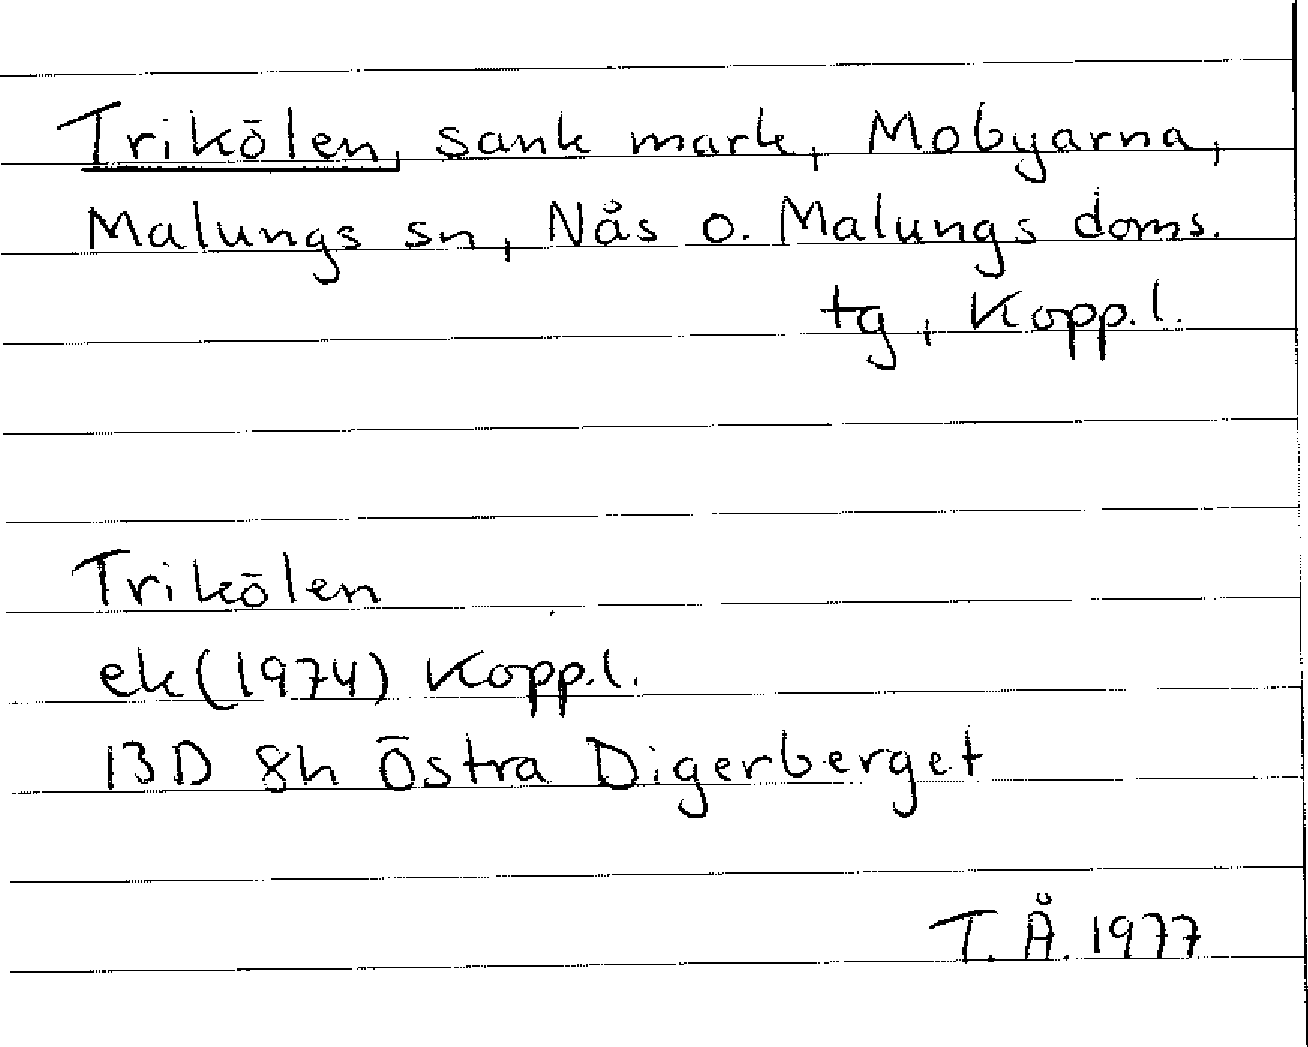 Trikölen, sank mark, Mobyarna,
Malungs sn, Nås o. Malungs doms.
tg, Kopp.l.
Trikölen
ek (1974) Kopp.l.
13D 8h Östra Digerberget
T.Å. 1977